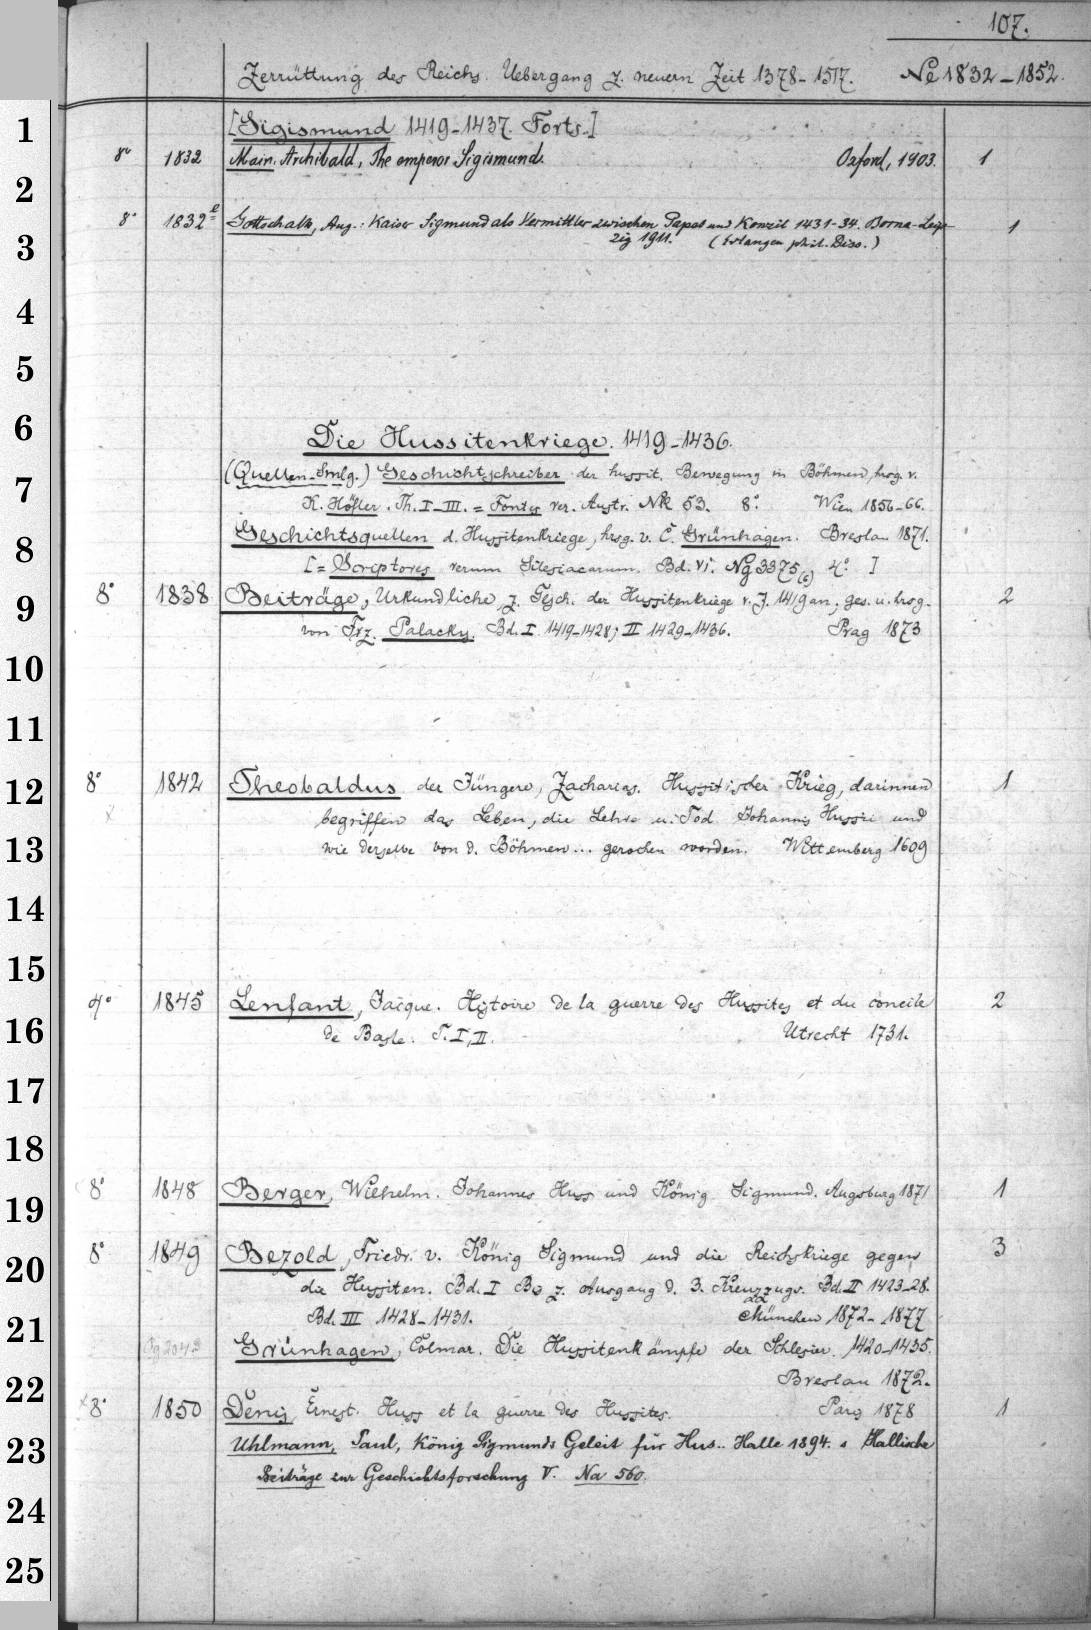 107.
Zerrüttung des Reichs. Uebergang z. neuern Zeit 1378-1517. Ne 1832-1852.
[Sigismund 1419-1437. Forts.]
8° 1832 Main. Archibald, The emperor Sigismund. Oxford, 1903. 1
8° 1832e Gottschalk, Aug.: Kaiser Sigmund als Vermittler zwischen Papst und Konzil 1431-34. Borna-Leip- 1
zig 1911. (Erlangen phil. Diss.)
Die Hussitenkriege. 1419-1436.
(Quellen-Smlg.) Geschichtschreiber der hussit. Bewegung in Böhmen, hrsg. v.
K. Höfler. Th. I-III. = Fontes rer. Austr. Nk 53. 8°. Wien 1856-66.
Geschichtsquellen d. Hussitenkriege, hrsg. v. C. Grünhagen. Breslau 1871.
[= Scriptores rerum Silesiacarum. Bd. VI. Ng 3375(6) 4° ]
8° 1838 Beiträge, Urkundliche, z. Gesch. der Hussitenkriege v. J. 1419 an, ges. u. hrsg. 2
von Frz. Palacky. Bd. I 1419-1428; II 1429-1436. Prag 1873
8° 1842 Theobaldus der Jüngere, Zacharias. Hussitischer Krieg, darinnen 1
begriffen das Leben, die Lehre u. Tod Johannis Hussii und
wie derselbe von d. Böhmen... gerochen worden. Wittemberg 1609
4° 1845 Lenfant, Jacque. Histoire de la guerre des Hussites et du concile 2
de Basle. T. I, II. Utrecht 1731.
8° 1848 Berger, Wilhelm. Johannes Huss und König Sigmund. Augsburg 1871 1
8° 1849 Bezold, Friedr. v. König Sigmund und die Reichskriege gegen 3
die Hussiten. Bd. I Bis z. Ausgang d. 3. Kreuzzugs. Bd. II 1423-28.
Bd. III 1428-1431. München 1872-1877
Grünhagen, Colmar. Die Hussitenkämpfe der Schlesier. 1420-1435.
Breslau 1872.
8° 1850 Denis, Ernest. Huss et la guerre des Hussites. Paris 1878 1
Uhlmann, Paul, König Sigmunds Geleit für Hus.. Halle 1894. = Hallische
Beiträge zur Geschichtsforschung V. Na 560.
1
2
3
4
5
6
7
8
9
10
11
12
13
14
15
16
17
18
19
20
21
22
23
24
25